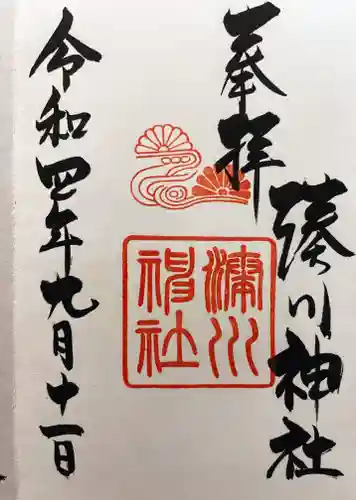 奉拝
湊川神社
湊川神社
令和四年九月十一日